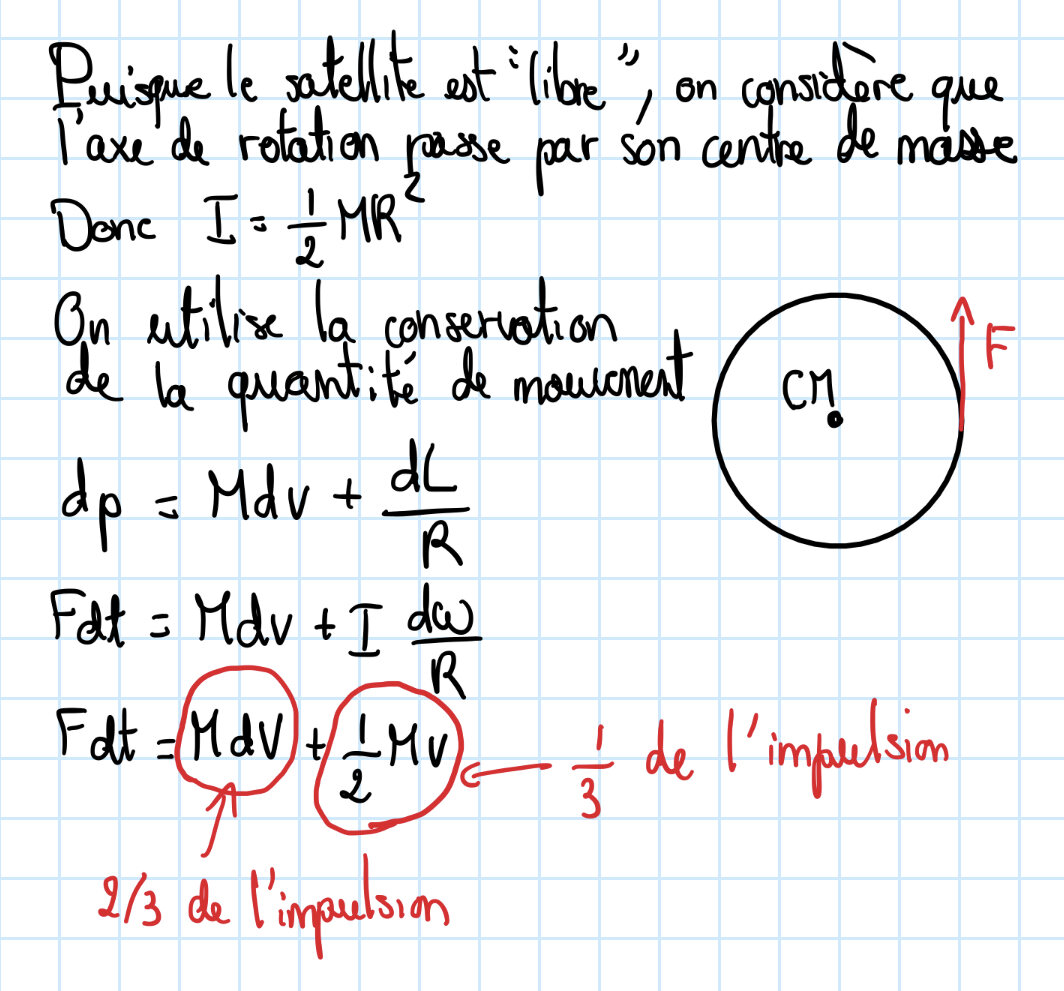 Puisque le satellite est "libre", on considère que
l'axe de rotation passe par son centre de masse
Donc I = 1/2 MR²
On utilise la conservation
de la quantité de mouvement
CM
F
dp = Mdv + dL/R
Fdt = Mdv + I dω/R
Fdt = MdV + 1/2 Mv
1/3 de l'impulsion
2/3 de l'impulsion